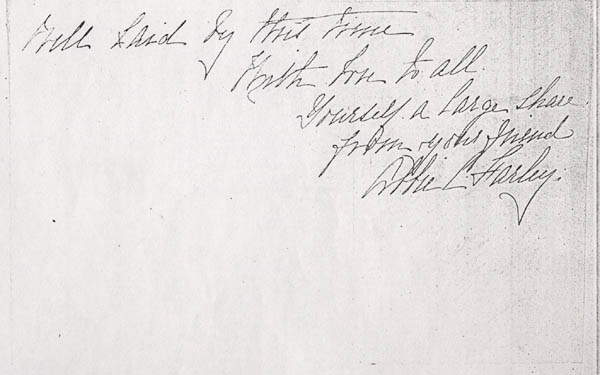 Well Laid by this time
With Love to all.
Yourself a large share
from your friend
Abbie L. Farley.